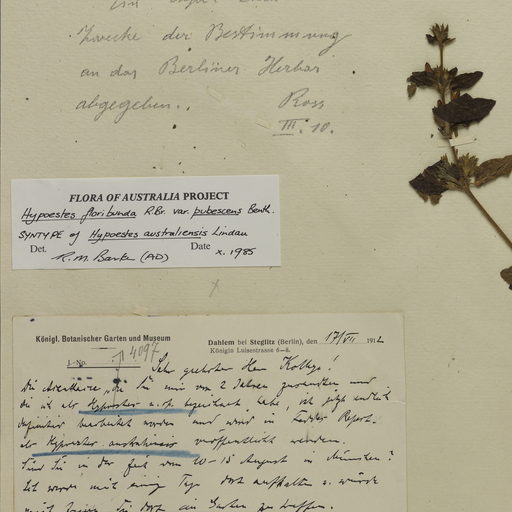 Ein
Zwecke der Bestimmung
an das Berliner Herbar
abgegeben.
Ross
III. 10.
FLORA OF AUSTRALIA PROJECT
Hypoestes floribunda R.Br. var. pubescens Benth.
SYNTYPE of Hypoestes australiensis Lindau
Det. Date x. 1985
R.M. Barker (AD)
Königl. Botanischer Garten und Museum
Dahlem bei Steglitz (Berlin), den 17/VII 1912
Königin Luisenstrasse 6–8.
J.-No. 4097
Sehr geehrter Herr Kollege!
Die Acanthacee, die Sie mir vor 2 Jahren zusandten und
die ich als Hypoestes n. sp. bezeichnet habe, ist jetzt endlich
definitiv bearbeitet worden und wird in Feddes Report.
als Hypoestes australiensis veröffentlicht werden.
Sind Sie in der Zeit vom 10–15 August in München?
Ich werde mich einige Tage dort aufhalten u. würde
mich freuen Sie dort im Garten zu treffen.